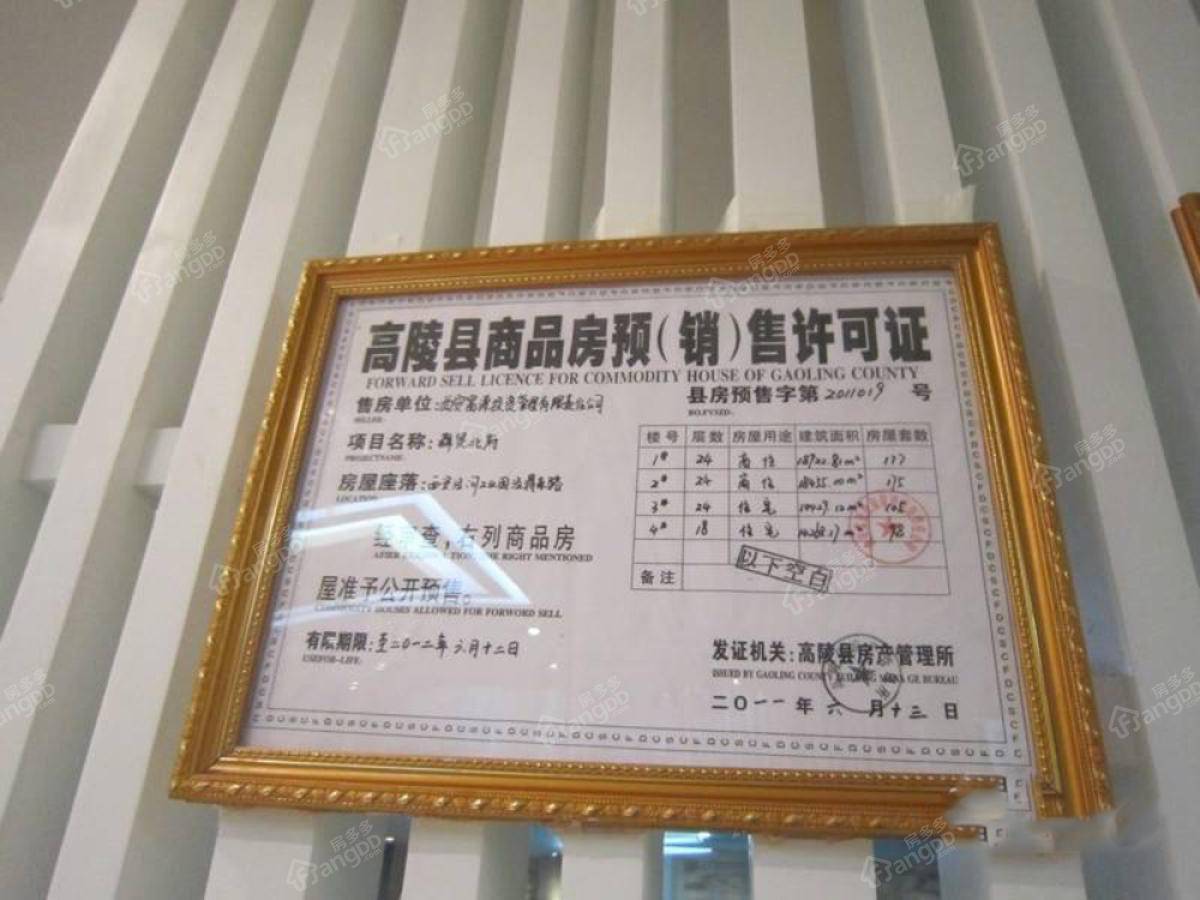 高陵县商品房预(销)售许可证
FORWARD SELL LICENCE FOR COMMODITY HOUSE OF GAOLING COUNTY
县房预售字第2011019号
售房单位:西安富源投资管理有限责任公司
SELLER:
项目名称:
PROJECTNAME:
房屋座落:西安泾河工业园
LOCATION
经审查,右列商品房
THE RIGHT MENTIONED
屋准予公开预售。
COMMODITY HOUSES ALLOWED FOR FORWORD SELL
有限期限:至二〇一二年六月十二日
USEFOR-LIFE:
楼号 层数 房屋用途 建筑面积 房屋套数
1# 24 商住 177
2# 24 商住 175
3# 24 住宅
4# 18 住宅 98
以下空白
备注
发证机关:高陵县房产管理所
ISSUED BY GAOLING COUNTY BUILDING MANA GE BUREAU
二〇一一年六月十三日
房多多
angDD